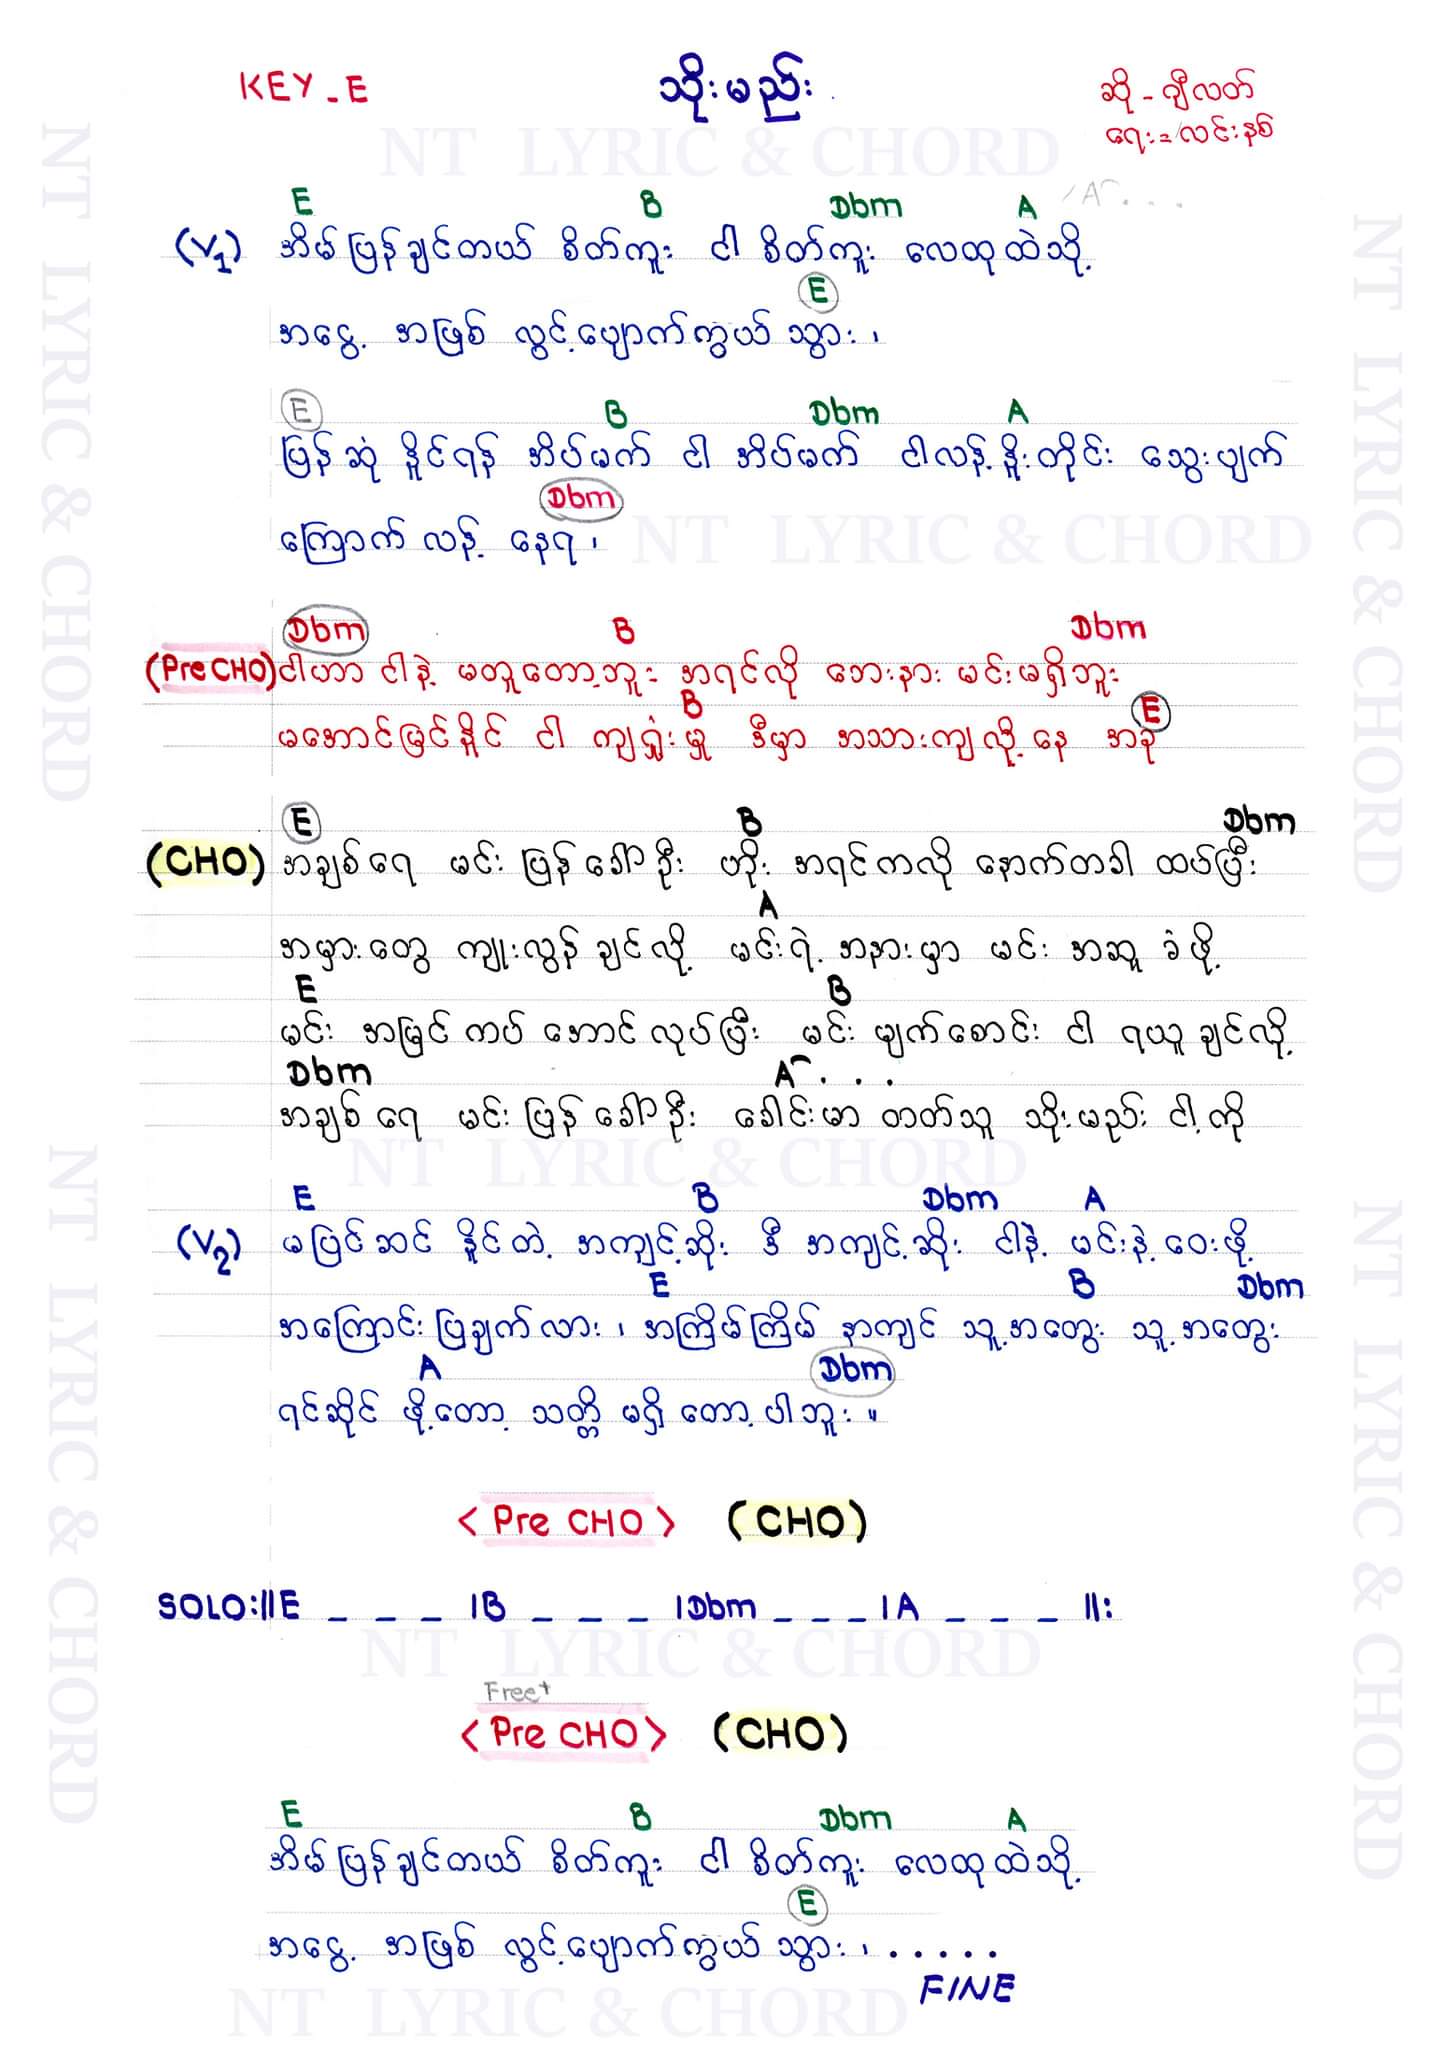 KEY - E
သိုးမည်း
ဆို - ဂျီလတ်
ရေး = လင်းနစ်
NT LYRIC & CHORD
E B Dbm A A . . .
(V1) အိမ်ပြန်ချင်တယ် စိတ်ကူး ငါ စိတ်ကူး လေထုထဲသို့
E
အငွေ့ အဖြစ် လွင့်ပျောက်ကွယ် သွား ၊
E B Dbm A
ပြန်ဆုံ နိူင်ရန် အိပ်မက် ငါ အိပ်မက် ငါလန့်နိူးတိုင်း သွေးပျက်
Dbm
ကြောက်လန့် နေရ ၊
NT LYRIC & CHORD
Dbm B Dbm
(Pre CHO) ငါဟာ ငါနဲ့ မတူတော့ဘူး အရင်လို ဘေးနား မင်းမရှိဘူး
B E
မအောင်မြင်နိူင် ငါ ကျရှုံးမှု ဒီမှာ အသားကျလို့နေ အခု
E B Dbm
(CHO) အချစ်ရေ မင်း ပြန်ခေါ်ဦး ဟိုး အရင်ကလို နောက်တခါ ထပ်ပြီး
A
အမှားတွေ ကျူးလွန်ချင်လို့ မင်းရဲ့ အနားမှာ မင်း အဆူ ခံဖို့
E B
မင်း အမြင်ကပ်အောင်လုပ်ပြီး မင်း မျက်စောင်း ငါ ရယူချင်လို့
Dbm A . . .
အချစ်ရေ မင်း ပြန်ခေါ်ဦး ခေါင်းမာ တတ်သူ သိုးမည်း ငါ့ကို
NT LYRIC & CHORD
E B Dbm A
(V2) မပြင်ဆင် နိူင်တဲ့ အကျင့်ဆိုး ဒီ အကျင့်ဆိုး ငါနဲ့ မင်းနဲ့ ဝေးဖို့
E B Dbm
အကြောင်းပြချက်လား ၊ အကြိမ်ကြိမ် နာကျင် သူ့အတွေး သူ့အတွေး
A Dbm
ရင်ဆိုင် ဖို့တော့ သတ္တိ မရှိတော့ပါဘူး ။
< Pre CHO > (CHO)
SOLO:||E _ _ _ |B _ _ _ |Dbm _ _ _ |A _ _ _ ||:
NT LYRIC & CHORD
Free+
< Pre CHO > (CHO)
E B Dbm A
အိမ်ပြန်ချင်တယ် စိတ်ကူး ငါ စိတ်ကူး လေထုထဲသို့
E
အငွေ့ အဖြစ် လွင့်ပျောက်ကွယ် သွား ၊ . . . . .
FINE
NT LYRIC & CHORD
NT LYRIC & CHORD
NT LYRIC & CHORD
NT LYRIC & CHORD
NT LYRIC & CHORD